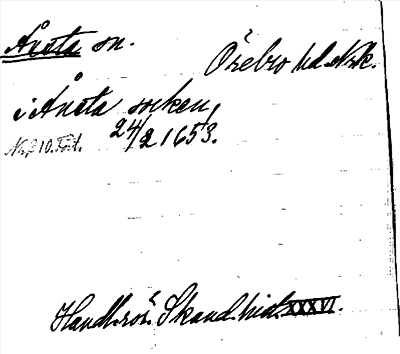 Ånsta sn.
Örebro hd. Nrk.
i Ånsta socken,
24/2 1653.
Handl. rör. Skand. hist. XXXVI.